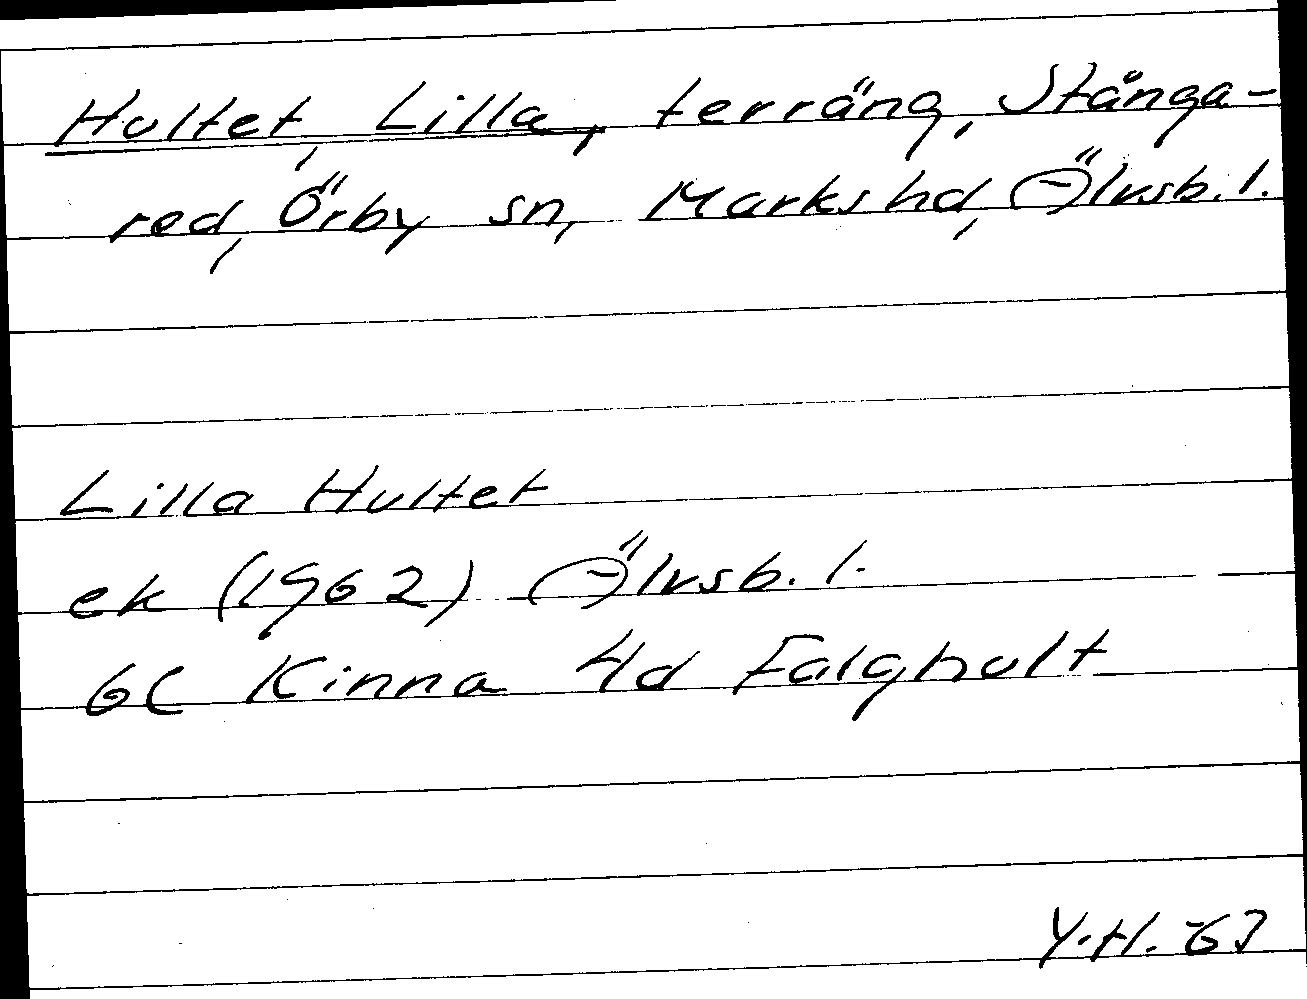 Hultet, Lilla, terräng, Stånga-
red, Örby sn, Marks hd, Älvsb. l.
Lilla Hultet
ek (1962) Älvsb. l.
6C Kinna 4d Falghult
Y.H. 63